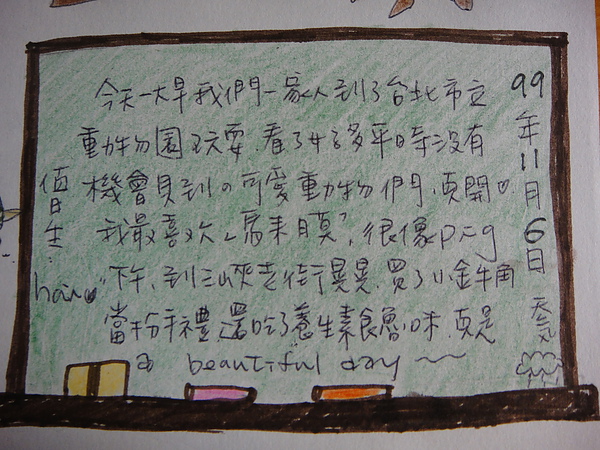 99年11月6日 天氣
今天一大早我們一家人到了台北市立
動物園玩耍.看了好多平時沒有
機會見到の可愛動物們,真開♡.
我最喜歡"馬來貘",很像pig
下午,到三峽老街晃晃.買了小金牛角
當手禮.還吃了養生素食魯味.真是
a beautiful day ~~
值日生: